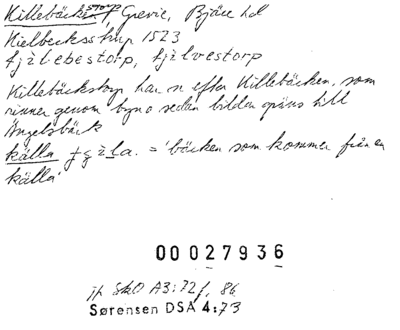 Killebäckstorp, Grevie, Bjäre hd
Kielbecksstrup 1523
Killebäckstorp har n efter Killebäcken, som
rinner genom byn o sedan bildar gräns till
Ängelsbäck
källa = 'bäcken som kommer från en
källa'
00027936
jfr SkO A3:72f, 86
Sørensen DSÅ 4:73